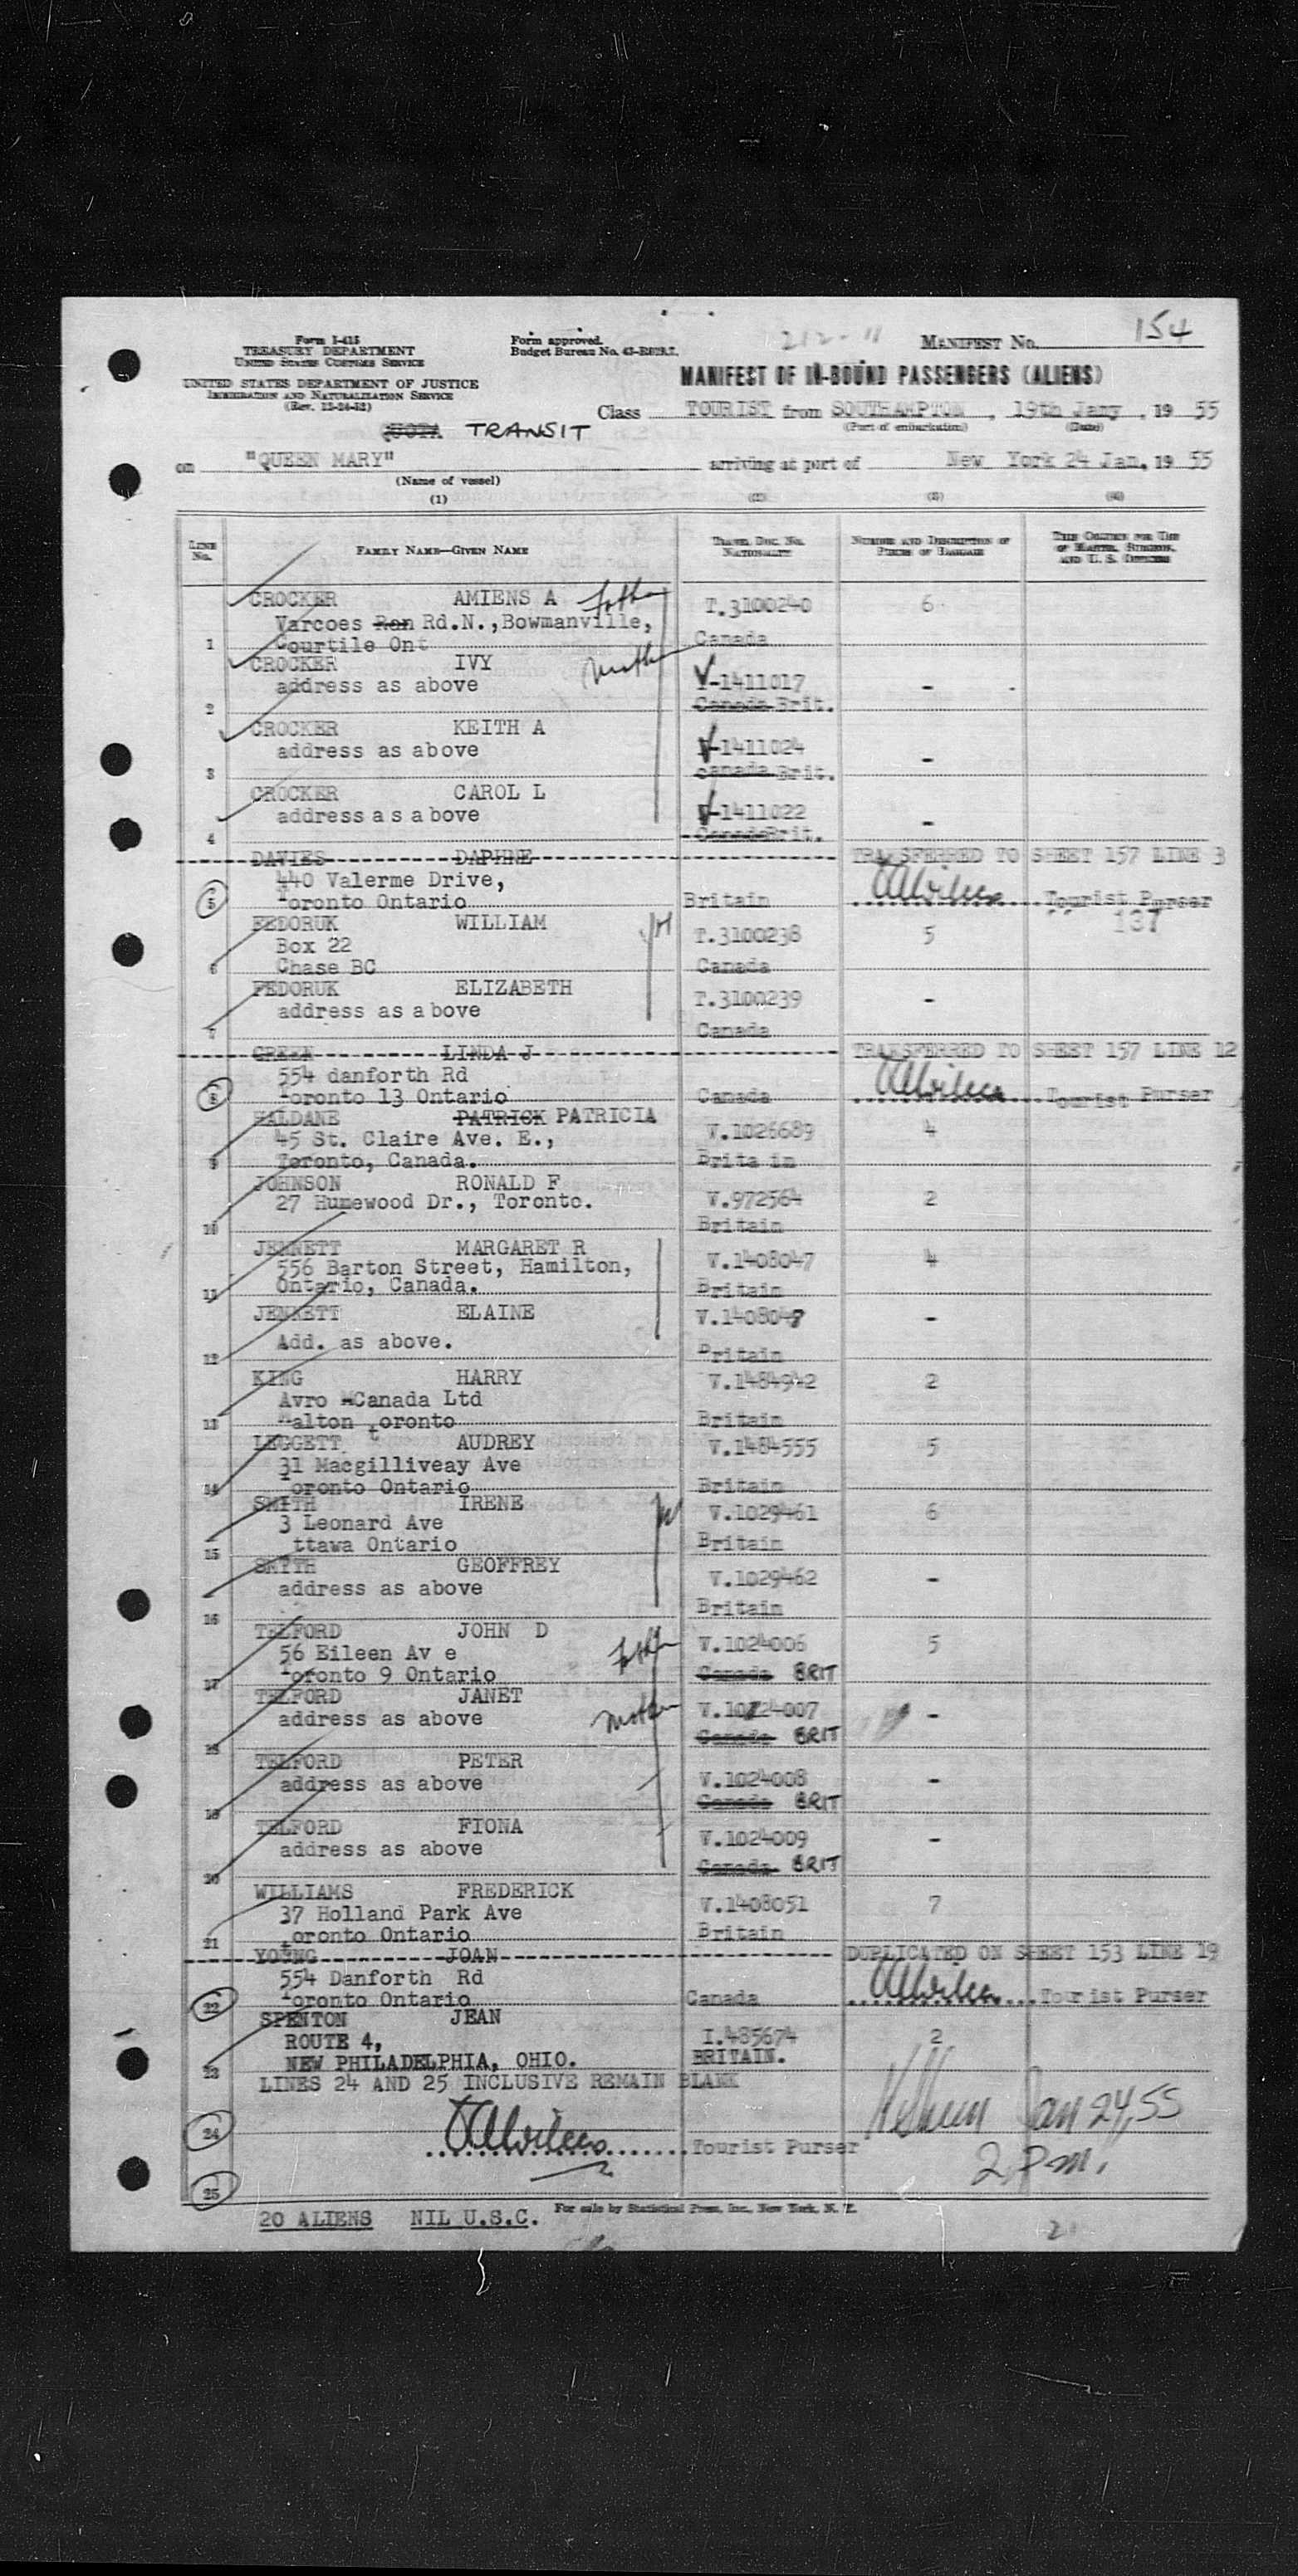 154
212-11
Form I-415
TREASURY DEPARTMENT
UNITED STATES CUSTOMS SERVICE
Form approved.
Budget Bureau No. 43-R
MANIFEST No.
UNITED STATES DEPARTMENT OF JUSTICE
IMMIGRATION AND NATURALIZATION SERVICE
(Rev. 12-24-52)
MANIFEST OF IN-BOUND PASSENGERS (ALIENS)
Class TOURIST from SOUTHAMPTON, 19th Jany, 19 55
(Port of embarkation) (Date)
TRANSIT
on "QUEEN MARY" arriving at port of New York 24 Jan, 19 55
(Name of vessel)
(1) (2) (3) (4)
LINE No. FAMILY NAME—GIVEN NAME TRAVEL DOC. NO. NATIONALITY NUMBER AND DESCRIPTION OF PIECES OF BAGGAGE THIS COLUMN FOR USE OF MASTER, SURGEON, AND U. S. OFFICERS
CROCKER AMIENS A Father T.3100240 6
Varcoes Ron Rd.N.,Bowmanville,
1 Courtile Ont Canada
CROCKER IVY Mother V-1411017 -
address as above
2 Canada Brit.
CROCKER KEITH A V-1411024 -
address as above
3 Canada Brit.
CROCKER CAROL L V-1411022 -
address a s a bove
4 Canada Brit.
DAVIES DAPHNE TRANSFERRED TO SHEET 157 LINE 3
440 Valerme Drive,
5 Toronto Ontario Britain Tourist Purser
137
FEDORUK WILLIAM T.3100238 5
Box 22
6 Chase BC Canada
FEDORUK ELIZABETH T.3100239 -
address as a bove
7 Canada
GREEN LINDA J TRANSFERRED TO SHEET 157 LINE 12
554 danforth Rd
8 Toronto 13 Ontario Canada Tourist Purser
HALDANE PATRICK PATRICIA V.1026689 4
45 St. Claire Ave. E.,
9 Toronto, Canada. Brita in
JOHNSON RONALD F V.972564 2
27 Humewood Dr., Toronto.
10 Britain
JENNETT MARGARET R V.1408047 4
556 Barton Street, Hamilton,
11 Ontario, Canada. Britain
JENNETT ELAINE V.1408048 -
Add. as above.
12 Britain
KING HARRY V.1484942 2
Avro Canada Ltd
13 Malton toronto Britain
LEGGETT AUDREY V.1484555 5
31 Macgilliveay Ave
14 Toronto Ontario Britain
SMITH IRENE V.1029461 6
3 Leonard Ave
15 ttawa Ontario Britain
SMITH GEOFFREY V.1029462 -
address as above
16 Britain
TELFORD JOHN D Father V.1024006 5
56 Eileen Av e
17 Toronto 9 Ontario Canada BRIT
TELFORD JANET Mother V.1024007 -
address as above
18 Canada BRIT
TELFORD PETER V.1024008 -
address as above
19 Canada BRIT
TELFORD FIONA V.1024009 -
address as above
20 Canada BRIT
WILLIAMS FREDERICK V.1408051 7
37 Holland Park Ave
21 toronto Ontario Britain
YOUNG JOAN DUPLICATED ON SHEET 153 LINE 19
554 Danforth Rd
22 Toronto Ontario Canada Tourist Purser
SPENTON JEAN I.485674 2
ROUTE 4,
23 NEW PHILADELPHIA, OHIO. BRITAIN.
LINES 24 AND 25 INCLUSIVE REMAIN BLANK
Jan 24, 55
24 Tourist Purser
2 Pm.
25
For sale by Statistical Press, Inc., New York, N. Y.
20 ALIENS NIL U.S.C.